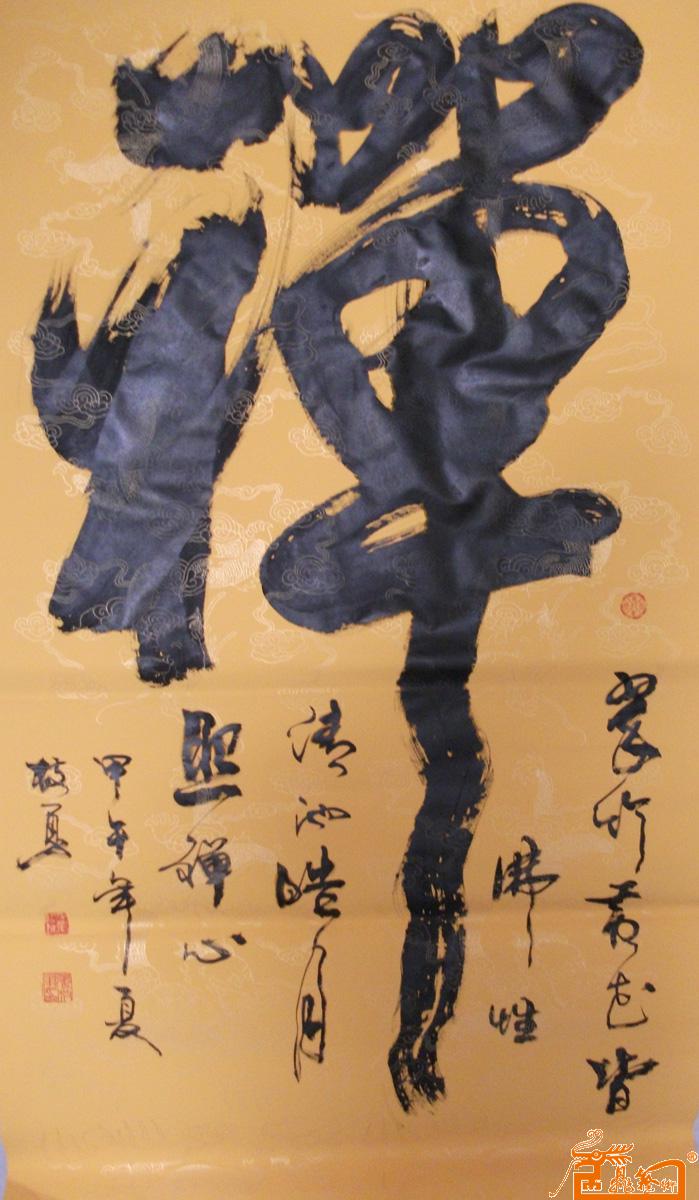 禪
翠竹黄花皆
佛性
清池皓月
照禪心
甲午年夏